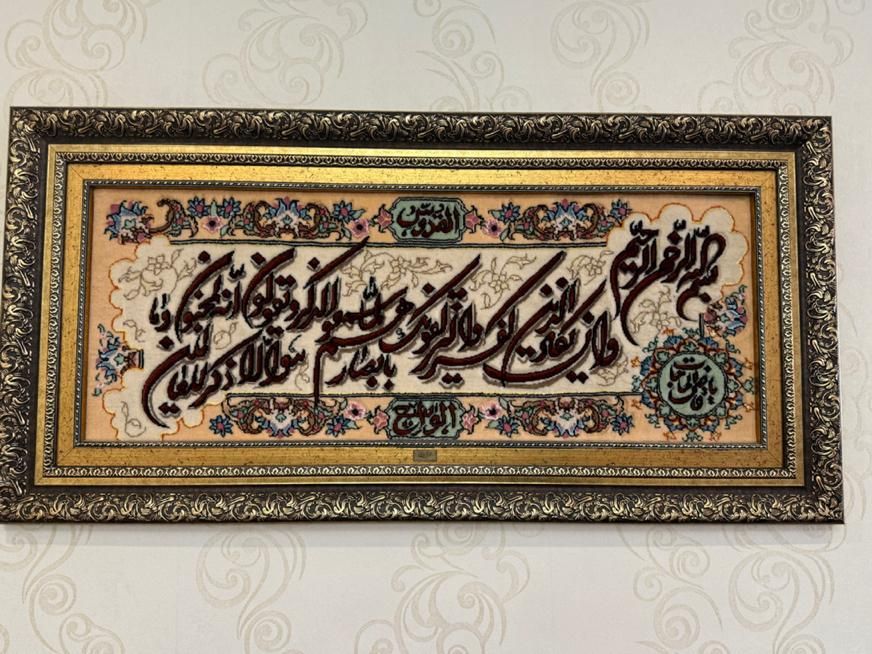 القدوس
بسم الله الرحمن الرحیم
وان یکاد الذین کفروا لیزلقونک بابصارهم لما سمعوا الذکر و یقولون انه لمجنون و ما هو الا ذکر للعالمین
یا قاضی الحاجات